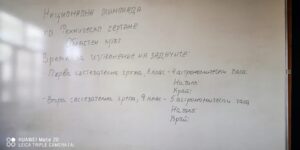 Национална олимпиада
по Техническо чертане
Областен кръг
Време за изпълнение на задачите:
- Първа състезателна група, 8 клас - 4 астрономически часа
Начало:
Край:
- Втора състезателна група, 9 клас - 5 астрономически часа
Начало:
Край:
HUAWEI Mate 20
LEICA TRIPLE CAMERA | AI